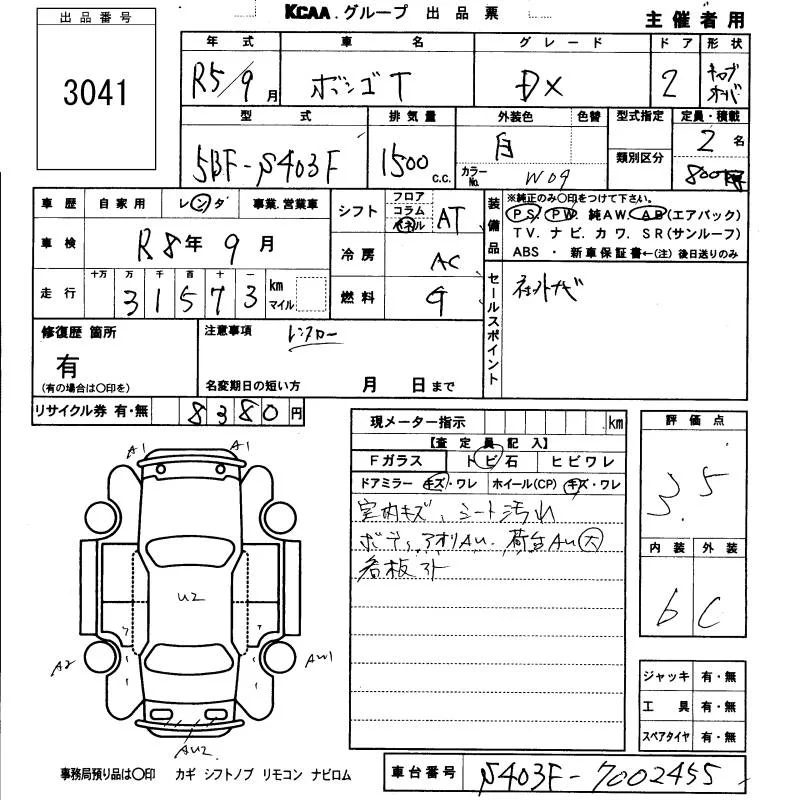 KCAA. グループ 出品票
主催者用
出品番号
3041
年式 車名 グレード ドア 形状
R5/9月 ボンゴT DX 2 キャブオーバ
型式 排気量 外装色 色替 型式指定 定員・積載
5BF-S403F 1500 c.c. 白 カラーNo. W09 類別区分 2名 800
車歴 自家用 レンタ 事業.営業車
車検 R8年9月
走行 十万 万 千 百 十 一 km マイル
3 1 5 7 3
シフト フロア コラム パネル AT
冷房 AC
燃料 G
装備品
※純正のみ〇印をつけて下さい。
PS. PW. 純AW. AB(エアバック)
TV. ナビ. カワ. SR(サンルーフ)
ABS ・ 新車保証書←(注) 後日送りのみ
セールスポイント
社外ナビ
修復歴 箇所
有
(有の場合は〇印を)
注意事項 レンタUP
名変期日の短い方 月 日まで
リサイクル券 有・無 8380円
現メーター指示 km
【査定員記入】
Fガラス トビ石 ヒビワレ
ドアミラー キズ・ワレ ホイール(CP) キズ・ワレ
室内キズ、シート汚れ
ボディ、アオリAU. 荷台AU大
看板ヌト
評価点
3.5
内装 外装
b C
ジャッキ 有・無
工具 有・無
スペアタイヤ 有・無
A1 A1
U2
A2 AW1
AU2
事務局預り品は〇印 カギ シフトノブ リモコン ナビロム
車台番号 S403F-7002455